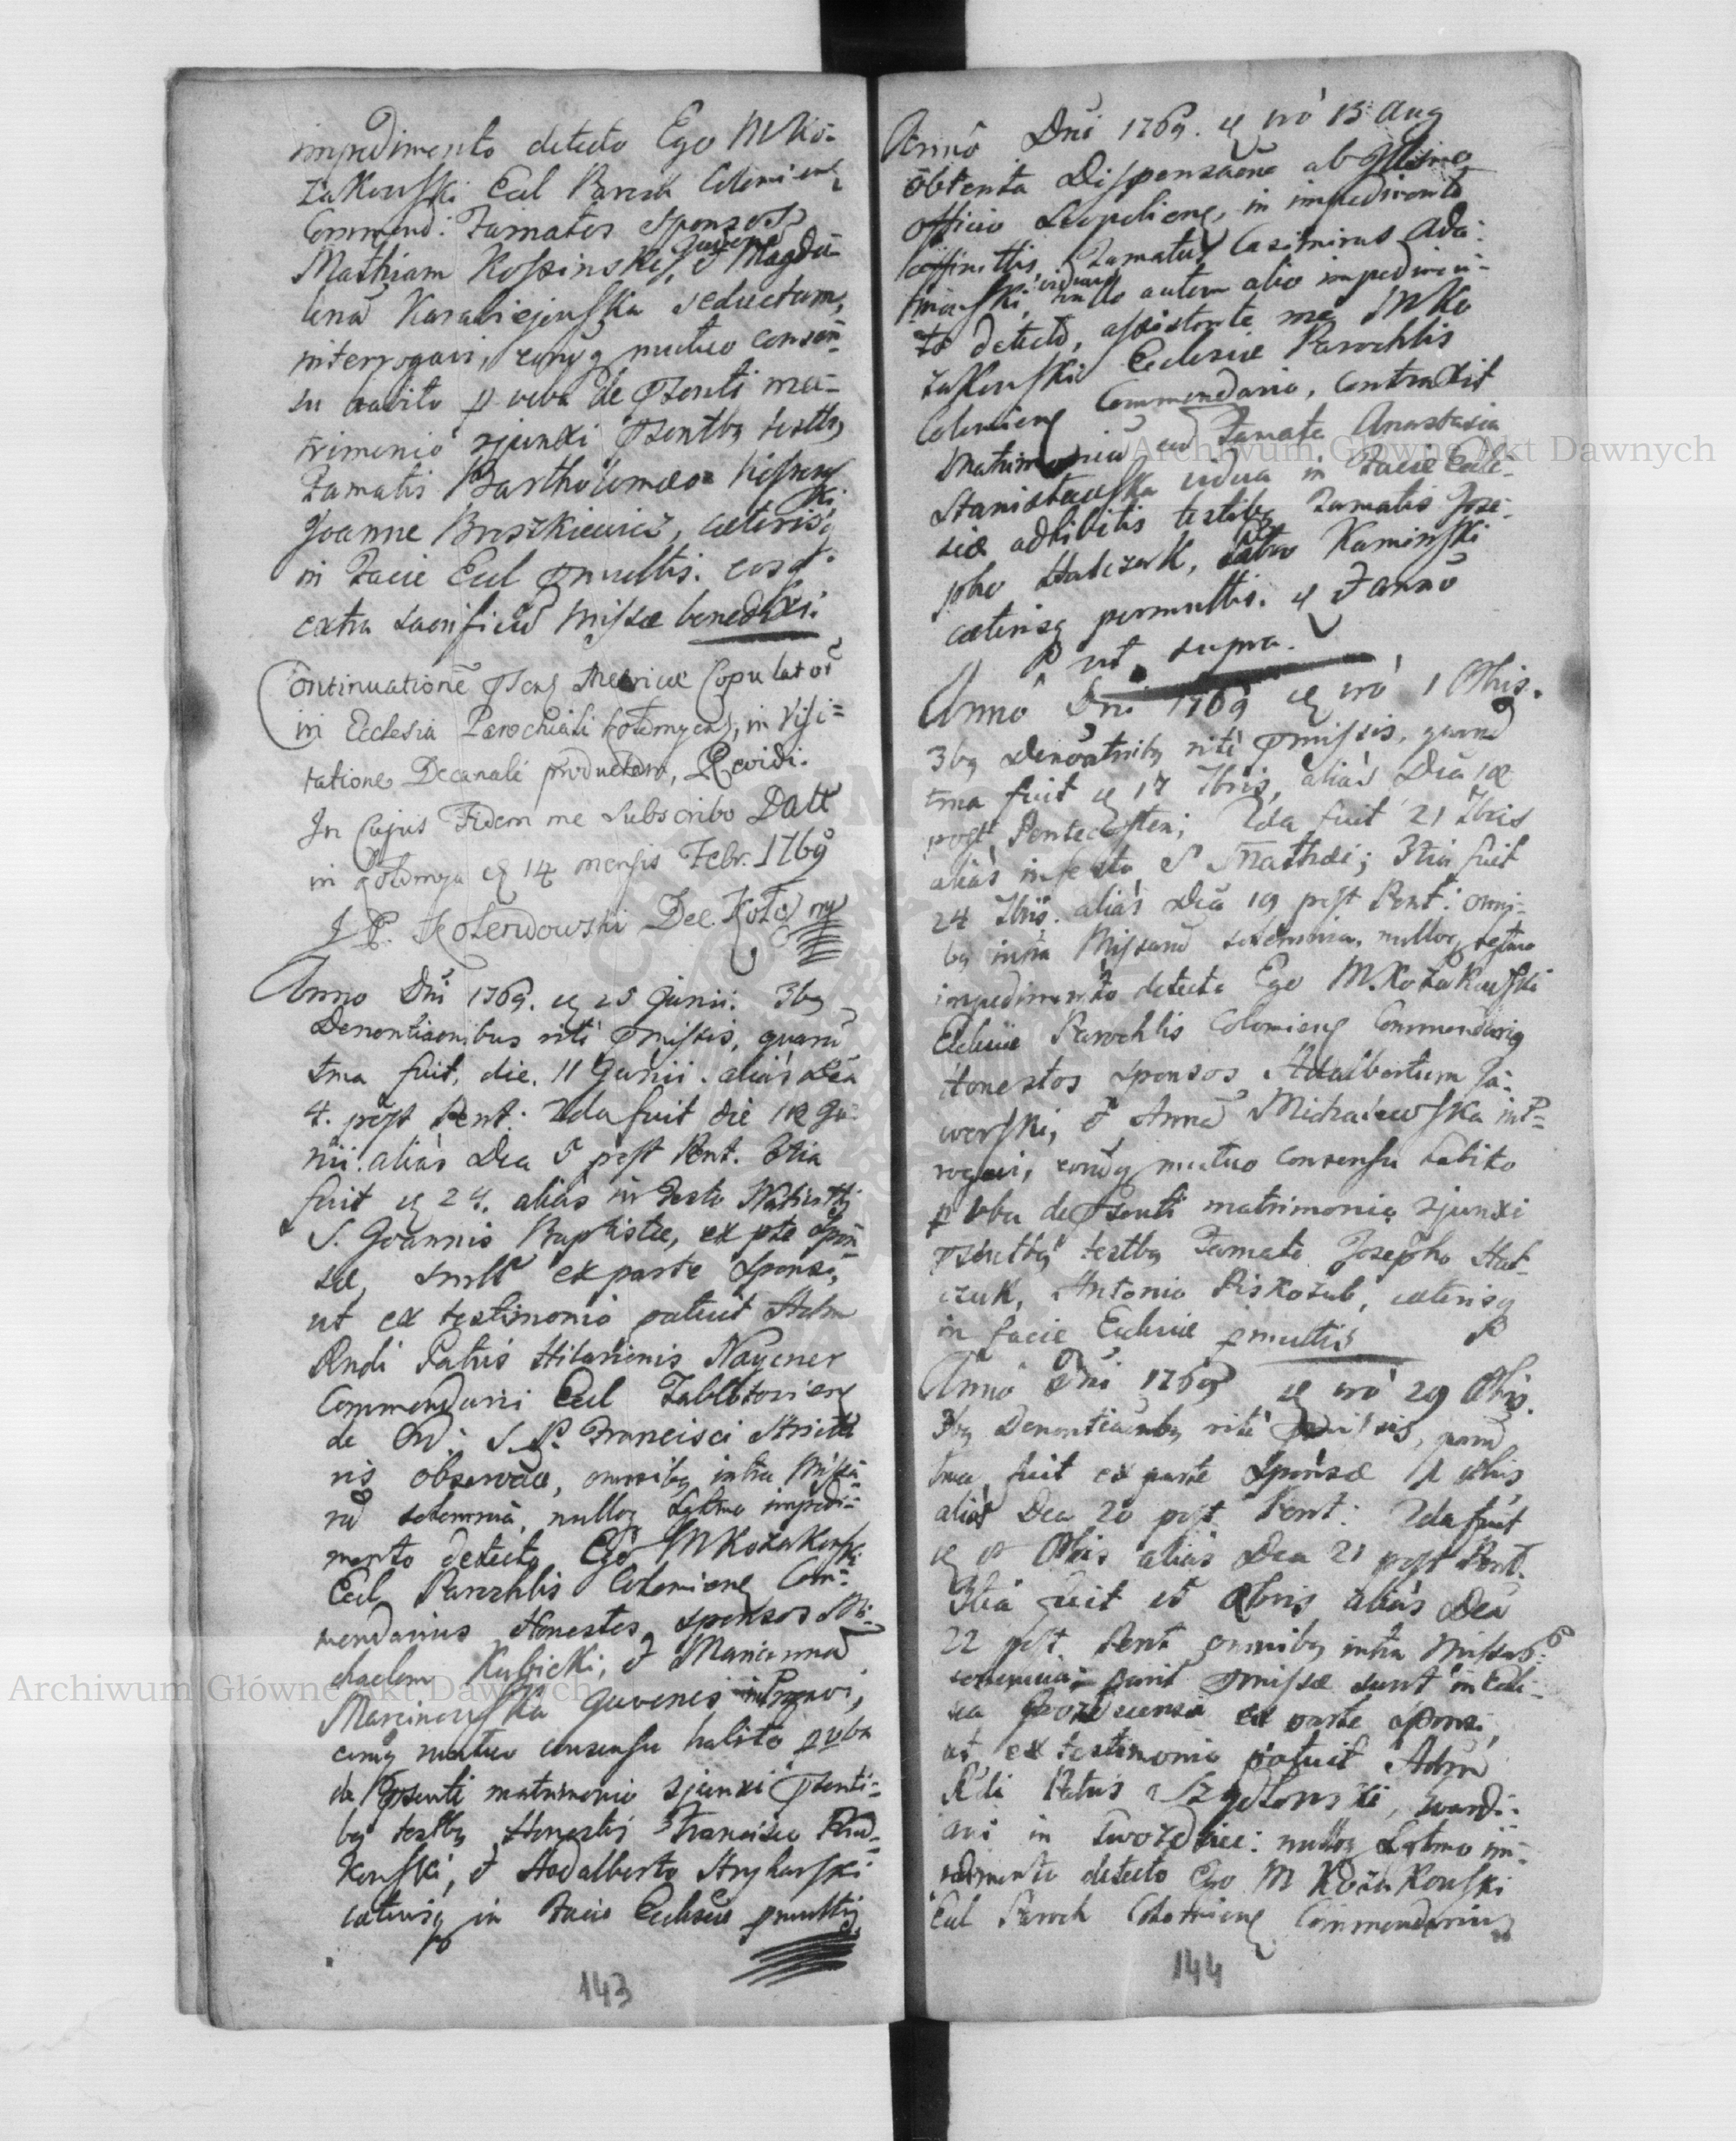 impedimento detecto Ego M Ko-
zakowski Eccl Paroch Colomiens
Commend: Famatos sponsos
Juvenes
Mathiam Kossinski, et Magda-
lenã seductam,
interrogavi, eorumq mutuo consen-
su habito p verba de psenti ma-
trimonio cjunxi psentbq testbq
Famatis Bartholomeo
Joanne Buszkiewicz, caeterisq
in Facie Eccl pmultis. eosq
extra sacrificiũ Missae benedixi.
Continuatione psens Metricae Copulator
in Ecclesia Parochiali Kołomyens, in Visi=
tatione Decanali productam, Revidi.
In Cujus Fidem me Subscribo Datt
in Kołomya 14 mensis Febr. 1769
Kolendowski Dec. Kołom
Anno Dni 1769. 25 Junii. 3bq
Denontiaonibus rite pmissis, quarũ
1ma fuit, die. 11 Junii. alias Dca
4. post Pent: 2da fuit die 18 Ju-
nii. alias Dca 5 post Pent. 3tia
fuit 24. alias in Festo Nativittis
S. Joannis Baptistae, ex pte spon-
sae, simlr ex parte sponsi,
ut ex testimonio patuit Adm
Rndi Patris Hilarionis Naycner
Commendarii Eccl
de Ord: S. P. Francisci Strictio
ris observãe, omnibq intra Missa-
rũ solemnia, nulloq Lgtmo impedi-
mento detecto Ego M Kozakowski
Eccl Parochlis Colomiens Com-
mendarius Honestos sponsos Mi-
chaelem Kubicki, et Mariannã
Marcinowska Juvenes intrgavi,
eorumq mutuo consensu habito p vba
de psenti matrimonio cjunxi psenti-
bq testbq Honestis Francisco
kowski, et Aadalberto
caeterisq in Facie Ecclesiae pmultis
143
Anno Dni 1769. vro 13 Aug
obtenta Dispensaone ab Illsmo
Officio Leopoliens, in impedimento
affinittis, Famatus Casimirus Ada-
viduus
mowski, nullo autem alio impedimen-
to detecto, assistente me M Ko
zakowski Ecclesiae Parochlis
Colomiens Commendario, contraxit
Matrimoniũ cũ Famata Anastasia
Stanisławska vidua in Facie Eccle-
siae adhibitis testibq Famatis Jose-
pho Halczak, Kaminski
caeterisq permultis. et anno
ut supra.
Anno Dni 1769 vro 1 8bris.
3bq Denõatnibq rite pmissis, quarũ
1ma fuit 17 7bris, alias Dca 18
post Pentecosten; 2da fuit 21 7bris
alias in festo S Mathaei; 3tia fuit
24 7bris. alias Dca 19 post Pent: omni-
bq intra Missarũ solemnia. nulloq Lgtmo
impedimento detecto Ego M. Kozakowski
Ecclesiae Parochlis Colomiens Commendariq
Honestos sponsos Adalbertum Ja-
worski, et Annã Michalewska intr-
rogavi, eorũq mutuo consensu habito
p vba de psenti matrimonio cjunxi
psentbq testbq Famato Josepho Hal-
czuk, Antonio Piskozub, caeterisq
in facie Ecclesiae pmultis
Anno Dni 1769 vro 29 8bris.
3bq Denontiaonbq rite pmissis, quarũ
1ma fuit ex parte Sponsae 1 8bris
alias Dca 20 post Pent: 2da fuit
8 8bris alias Dca 21 post Pent.
3tia fuit 15 8bris alias Dca
22 post Pent omnibq intra Missarũ
solemnia; parit pmissae sunt in Eccle-
sia ex parte sponsi,
ut ex testimonio patuit Adm
Rdi Patris Szydłowski, Guardi-
ani in nulloq Lgtmo im-
pedimento detecto Ego M Kozakowski
Eccl Paroch Colomiens Commendarius
144
Archiwum Główne Akt Dawnych
Archiwum Główne Akt Dawnych